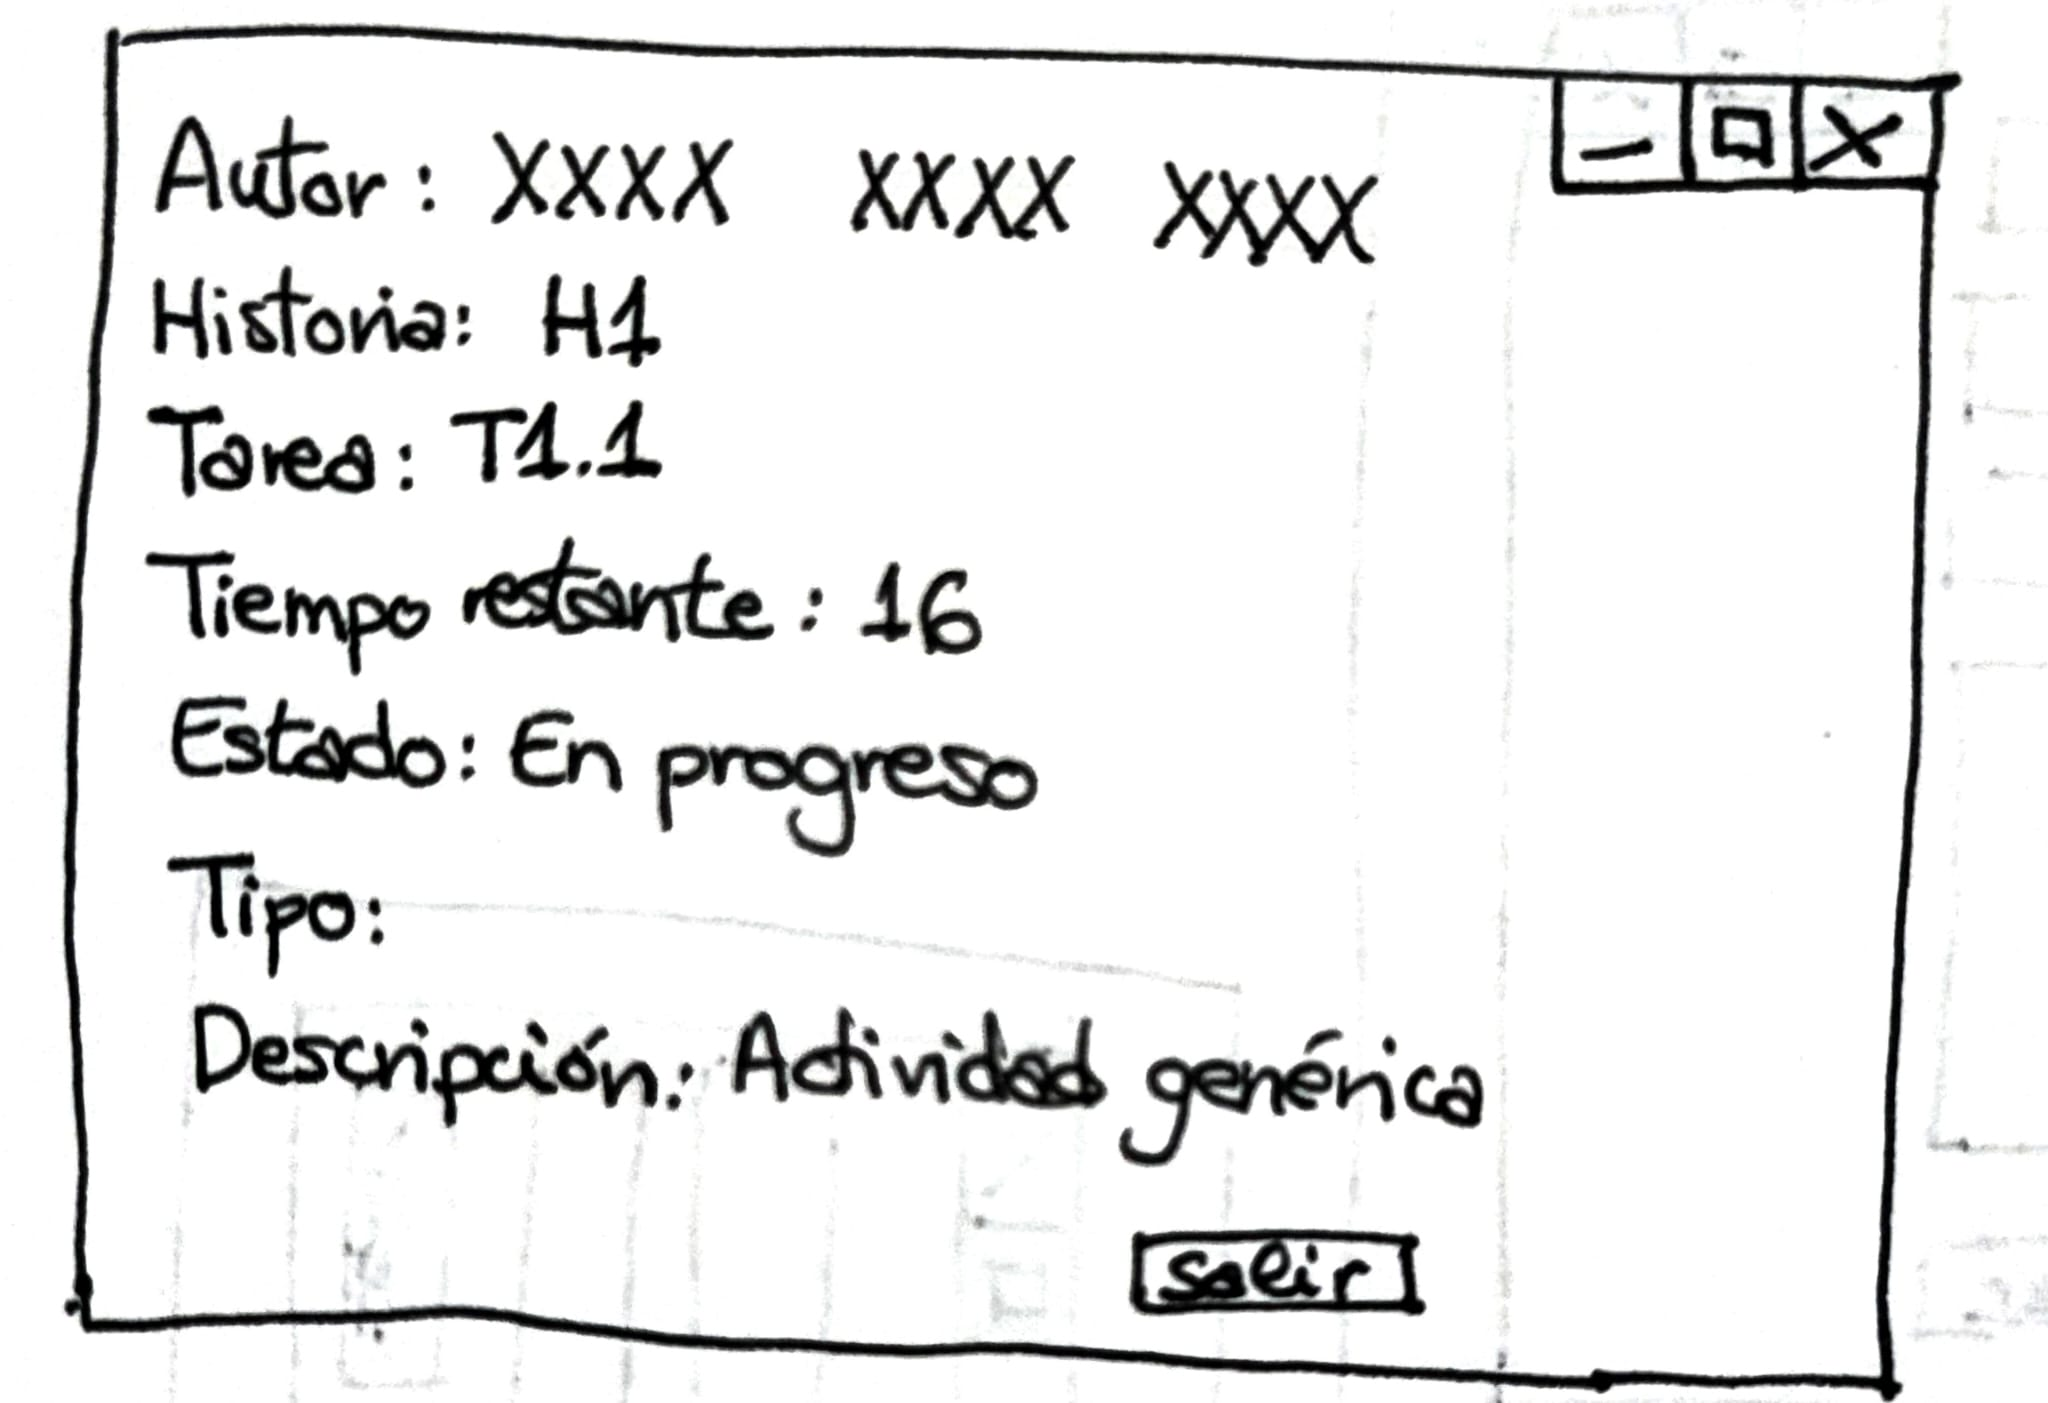 Autor: XXXX XXXX XXXX
Historia: H1
Tarea: T1.1
Tiempo restante: 16
Estado: En progreso
Tipo:
Descripción: Actividad genérica
Salir